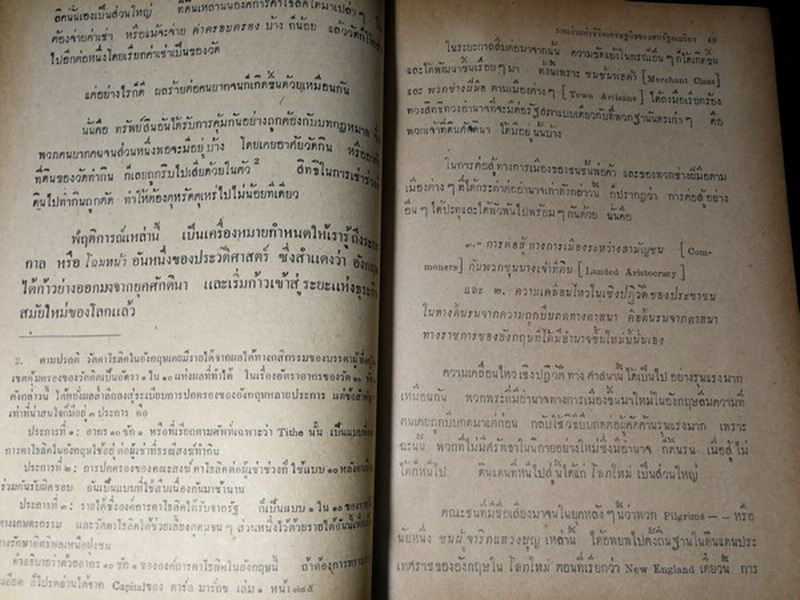 ต้องจ่ายค่าเช่า หรือแม้จะจ่าย ค่าครอบครอง บ้าง ก็น้อย แล้ววัดก็
ไปอีกต่อหนึ่งโดยเรียกค่าเช่าเป็นของวัด
แต่อย่างไรก็ดี ผลร้ายต่อคนยากจนก็เกิดขึ้นด้วยเหมือนกัน
นั่นคือ ทรัพย์สินอันได้รับการคุ้มกันอย่างถูกต้องกับบทกฎหมาย
พวกคนยากคนจนส่วนหนึ่งพอจะมีอยู่บ้าง โดยเคยอาศัยวัดกิน หรือ
ที่ดินของวัดทำกิน ก็เลยถูกริบไปเสียด้วยในตัว 2 สิทธิในการเช่า
ดินไปทำกินถูกตัด ทำให้ต้องคุหรัดคุเหร่ไปไม่น้อยทีเดียว
พฤติการณ์เหล่านี้ เป็นเครื่องหมายกำหนดให้เรารู้ถึงระยะ
กาล หรือ โฉมหน้า อันหนึ่งของประวัติศาสตร์ ซึ่งสำแดงว่า อังกฤษ
ได้ก้าวย่างออกมาจากยุคศักดินา และเริ่มก้าวเข้าสู่ ระยะแห่ง
สมัยใหม่ของโลกแล้ว
2. ตามปรกติ วัดคาโธลิคในอังกฤษเคยมีรายได้จากผลได้ทางกสิกรรมของบรรดา
เขตคุ้มครองของวัดคิดเป็นอัตรา ๑ ใน ๑๐ แห่งผลที่ทำได้ ในเรื่องอัตราอากรของวัด ๑๐
เท่าที่น่าสนใจก็มีอยู่ ๓ ประการ คือ
ประการที่ ๑: อากร ๑๐ ชัก ๑ หรือที่เรียกตามศัพท์เฉพาะว่า Tithe นั้น เป็นแบบ
การคาโธลิคในอังกฤษใช้อยู่ต่อผู้เช่าที่ธรณีสงฆ์ทำกิน
ประการที่ ๒: การปกครองของคณะสงฆ์คาโธลิคต่อผู้เช่าช่วงก็ใช้แบบ ๑๐ หลังคาเรือน
ร่วมกันรับผิดชอบ อันเป็นแบบที่ใช้สืบเนื่องกันมาช้านาน
ประการที่ ๓: รายได้ซึ่งองค์การคาโธลิคได้รับจากรัฐ ก็เป็นแบบ ๑ ใน ๑๐ ของ
คำอธิบายว่าด้วยอากร ๑๐ ชัก ๑ ขององค์การคาโธลิคในอังกฤษนี้ ถ้าต้องการ
ก็โปรดอ่านได้จาก Capital ของ คาร์ล มาร์กซ เล่ม ๑ หน้า ๗๘๕
ในระยะกาลสืบต่อมาจากนั้น ความขัดแย้งในกรณีอื่น ๆ ก็ได้เกิดขึ้น
และได้พัฒนาขึ้นเรื่อยๆ มา ทั้งนี้เพราะ ชนชั้นพ่อค้า [Merchant Class]
และ พวกช่างฝีมือ ตามเมืองต่างๆ [Town Artisans] ได้ลงมือเรียกร้อง
ทางสิทธิทางอำนาจที่จะมีต่อรัฐสภาแบบเดียวกับที่พวกฐานันดรเก่าๆ คือ
พวกเจ้าที่ดินศักดินา ได้มีอยู่นั้นบ้าง
ในการต่อสู้ทางการเมืองของชนชั้นพ่อค้า และของพวกช่างฝีมือตาม
เมืองต่างๆ ที่ได้กระทำต่ออำนาจเก่าดังกล่าวนี้ ก็ปรากฏว่า การต่อสู้อย่าง
อื่นๆ ได้ปะทุและได้พัวพันไปพร้อมๆ กันด้วย นั่นคือ
๑.- การต่อสู้ทางการเมืองระหว่างสามัญชน [Com-
moners] กับพวกขุนนางเจ้าที่ดิน [Landed Aristocracy]
และ ๒. ความเคลื่อนไหวในเชิงปฏิวัติของประชาชน
ในทางดิ้นรนจากความถูกบีบคดทางศาสนา คือดิ้นรนจากศาสนา
ทางราชการของอังกฤษที่ได้มีอำนาจขึ้นใหม่นั้นนั่นเอง
ความเคลื่อนไหวเชิงปฏิวัติ ทางศาสนานี้ ได้เป็นไปอย่างรุนแรงมาก
เหมือนกัน พวกพระที่มีอำนาจทางการเมืองขึ้นมาใหม่ในอังกฤษลืมความที่
ตนเคยถูกบีบกดมาแต่ก่อน กลับใช้วิธีบีบกดต่อผู้คัดค้านรุนแรงมาก เพราะ
ฉะนั้น พวกที่ไม่มีศรัทธาในนิกายอย่างใหม่ซึ่งมีอำนาจ ก็ดิ้นรน เมื่อสู้ไม่
ได้ก็หนีไป ดินแดนที่หนีไปสู่นั้นได้แก่ โลกใหม่ เป็นส่วนใหญ่
คณะชนที่มีชื่อเสียงมาจนในยุคหลังๆ นี้ว่าพวก Pilgrims -- หรือ
นัยหนึ่ง ชนผู้จาริกแสวงบุญ เหล่านี้ ได้อพยพไปตั้งถิ่นฐานในดินแดนประ
เทศราชของอังกฤษใน โลกใหม่ ตอนที่เรียกว่า New England เดี๋ยวนี้ การ